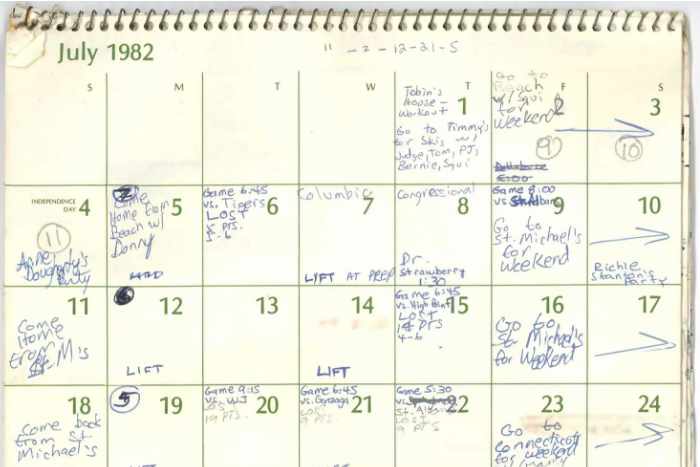 July 1982
11 - 2 - 12-21-5
S M T W T F S
Tobin's
House -
Workout
1
Go to Timmy's
for Skis w/
Judge, Tom, PJ,
Bernie, Squi
Go to
Beach
w/ Squi
for
Weekend
2
9
3
10
INDEPENDENCE
DAY 4
11
Anne
Dougherty's
Party
5
Come
Home from
Beach w/
Donny
Game 6:45
vs. Tigers
LOST
5 PTS.
5-6
6
Columbia
7
LIFT AT PREP
Congressional
8
Dr.
Strawberry
1:30
Game 8:00
vs.
9
Go to
St. Michael's
for
Weekend
10
Richie
Stanton's
Party
11
Come
Home
from
St. M's
12
LIFT
13
14
LIFT
Game 6:45
vs. High Point
15
LOST
PTS
4-6
16
Go to
St. Michael's
for Weekend
17
18
Come back
from St.
Michael's
5
19
LIFT
Game 9:15
vs. WJ
20
LOST
19 PTS.
Game 6:45
vs. Gonzaga
21
LOST
19 PTS.
Game 5:30
vs.
St. Albans
22
LOST
9 PTS
23
Go to
Connecticut
for weekend
24